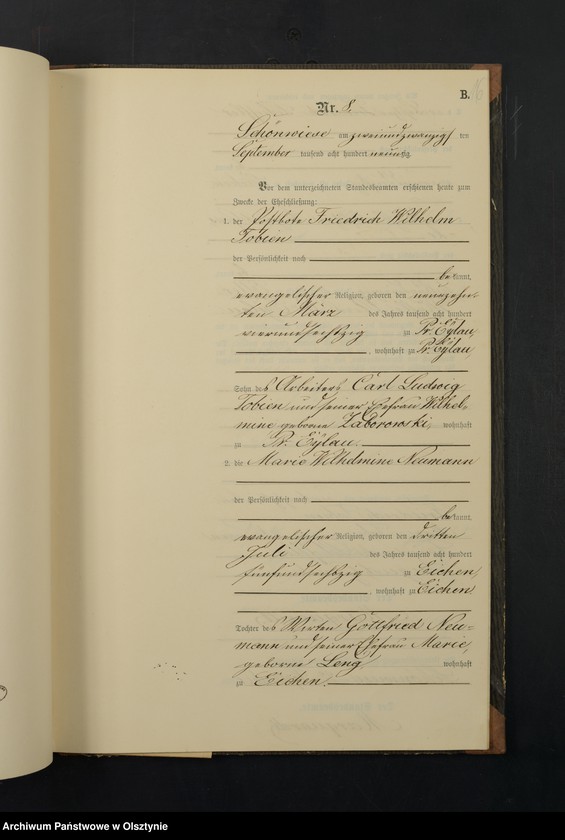 B.
Nr. 8.
Schönwiese am zweiundzwanzigsten
September tausend acht hundert neunzig
Vor dem unterzeichneten Standesbeamten erschienen heute zum
Zwecke der Eheschließung:
1. der Postbote Friedrich Wilhelm
Tobien
der Persönlichkeit nach
bekannt,
evangelischer Religion, geboren den neunzehn-
ten März des Jahres tausend acht hundert
vierundsechszig zu Pr. Eylau,
, wohnhaft zu Pr. Eylau
Sohn des Arbeiters Carl Ludwig
Tobien und seiner Ehefrau Wilhel-
mine geborne Zaborowski, wohnhaft
zu Pr. Eylau.
2. die Marie Wilhelmine Neumann
der Persönlichkeit nach
bekannt,
evangelischer Religion, geboren den dritten
Juli des Jahres tausend acht hundert
fünfundsechszig zu Eichen,
, wohnhaft zu Eichen
Tochter des Wirten Gottfried Neu-
mann und seiner Ehefrau Marie,
geborne Leng wohnhaft
zu Eichen.
Archiwum Państwowe w Olsztynie